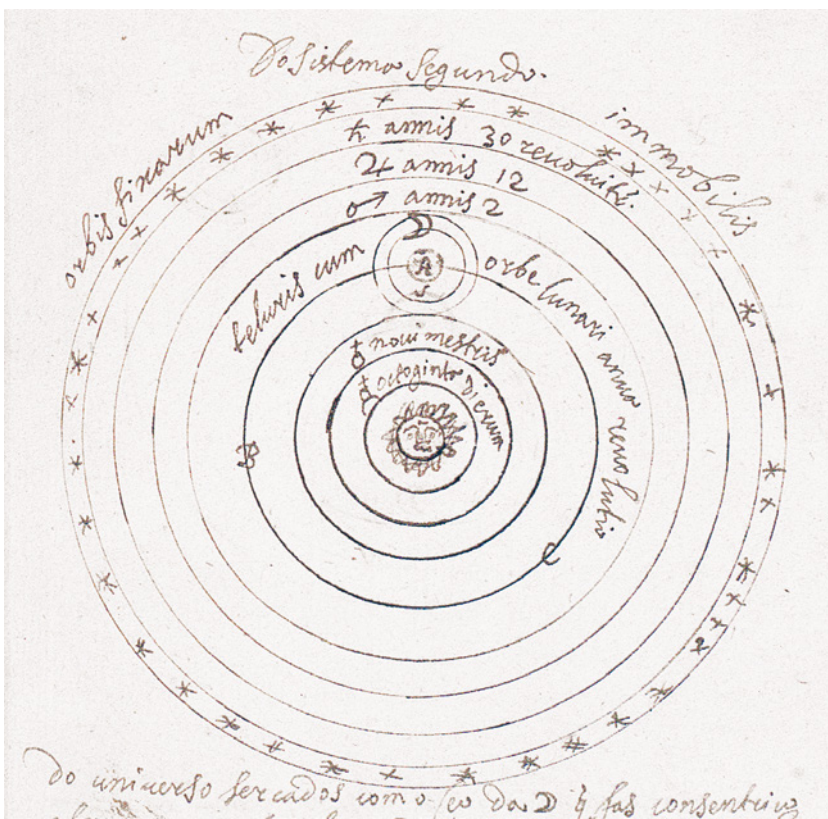 Do sistema segundo.
orbis fixarum immobilis
♄ annis 30 revoluitr.
♃ annis 12
♂ annis 2
teluris cum orbe lunari annua revolutio
A
♀ novimestris
☿ octoginta dierum
do universo sercados como o ceo da ☽ q̃ fas consentrico